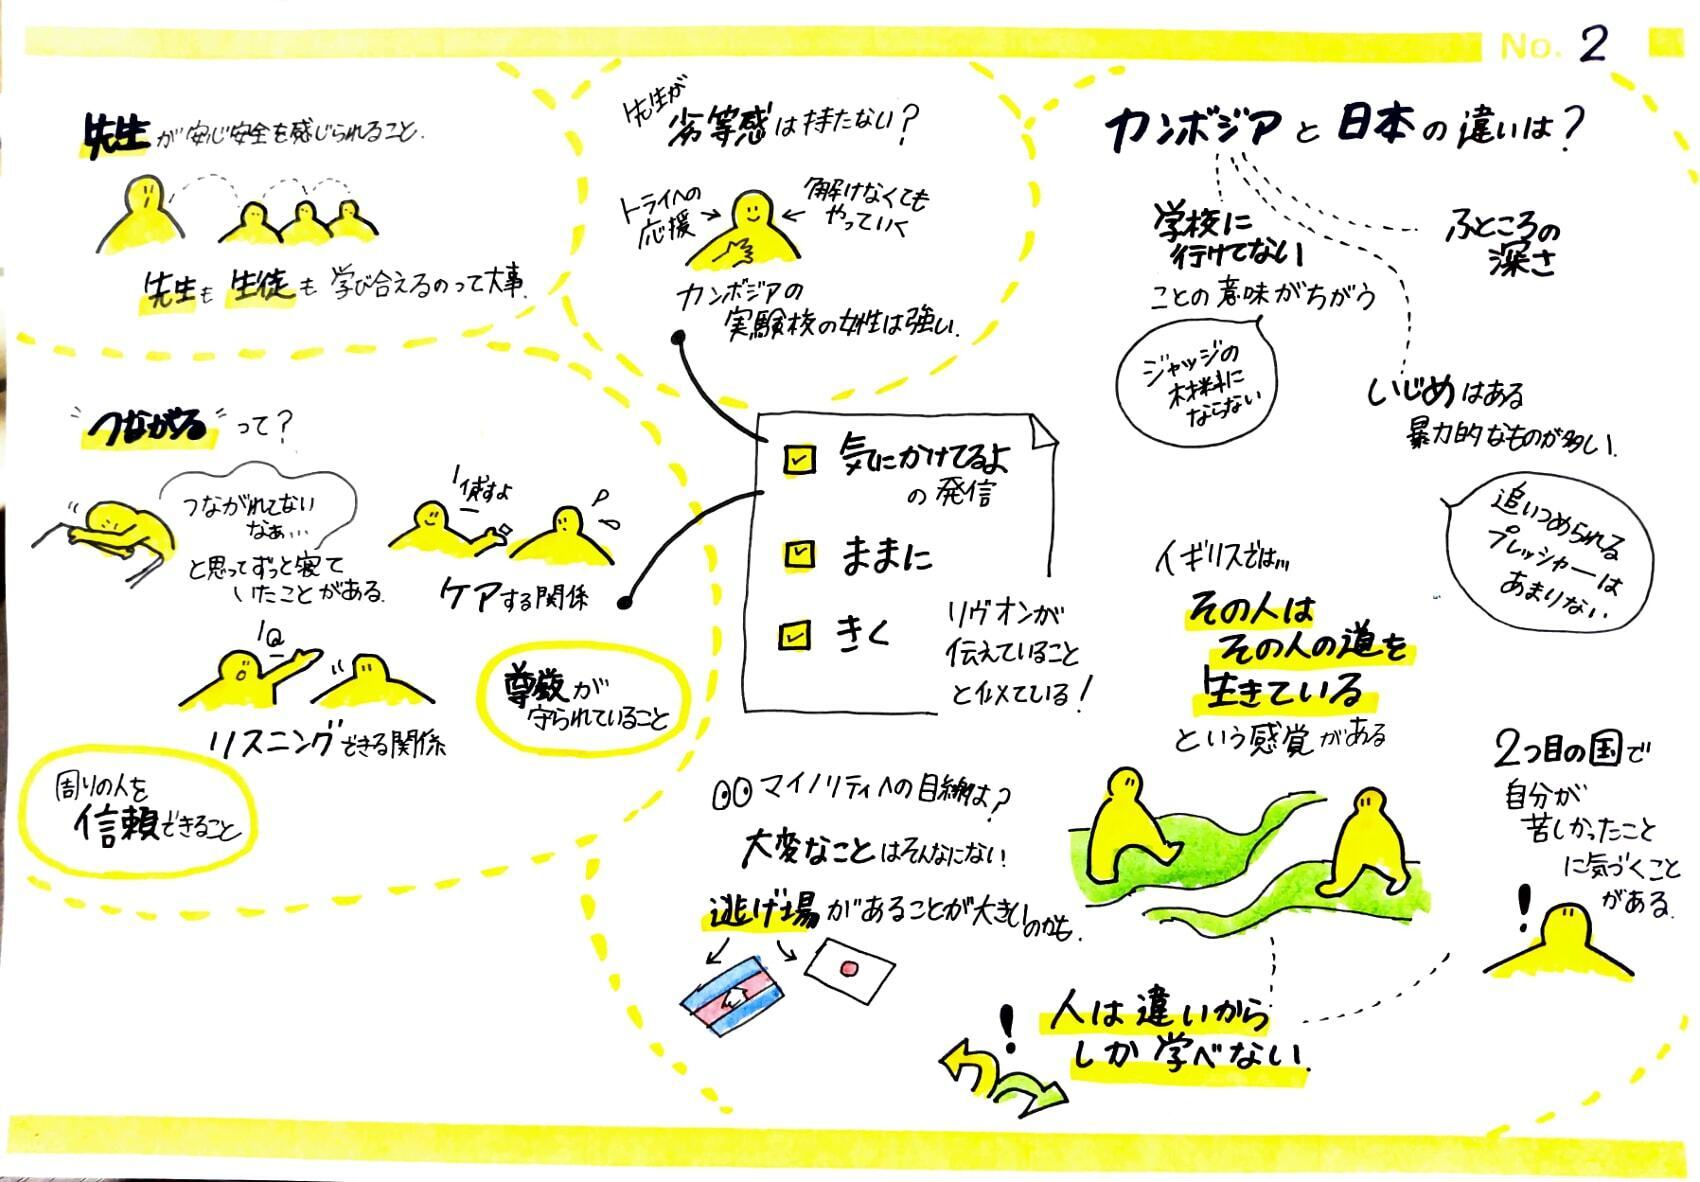 No. 2
先生が安心安全を感じられること.
先生も生徒も学び合えるのって大事.
先生が
劣等感は持たない?
トライへの
応援
解けなくても
やっていく
カンボジアの
実験校の女性は強い.
カンボジアと日本の違いは?
学校に
行けてない
ことの意味がちがう
ジャッジの
材料に
ならない
ふところの
深さ
いじめはある
暴力的なものが多い.
追いつめられる
プレッシャーは
あまりない
"つながる"って?
つながれてない
なぁ...
と思ってずっと寝て
いたことがある.
使すよ
ケアする関係
Q
リスニングできる関係
尊厳が
守られていること
周りの人を
信頼できること
気にかけてるよ
の発信
ままに
きく
リヴオンが
伝えていること
と似ている!
イギリスでは...
その人は
その人の道を
生きている
という感覚がある
マイノリティへの目線は?
大変なことはそんなにない!
逃げ場があることが大きいのかも.
2つ目の国で
自分が
苦しかったこと
に気づくこと
がある.
!
!
人は違いから
しか学べない.